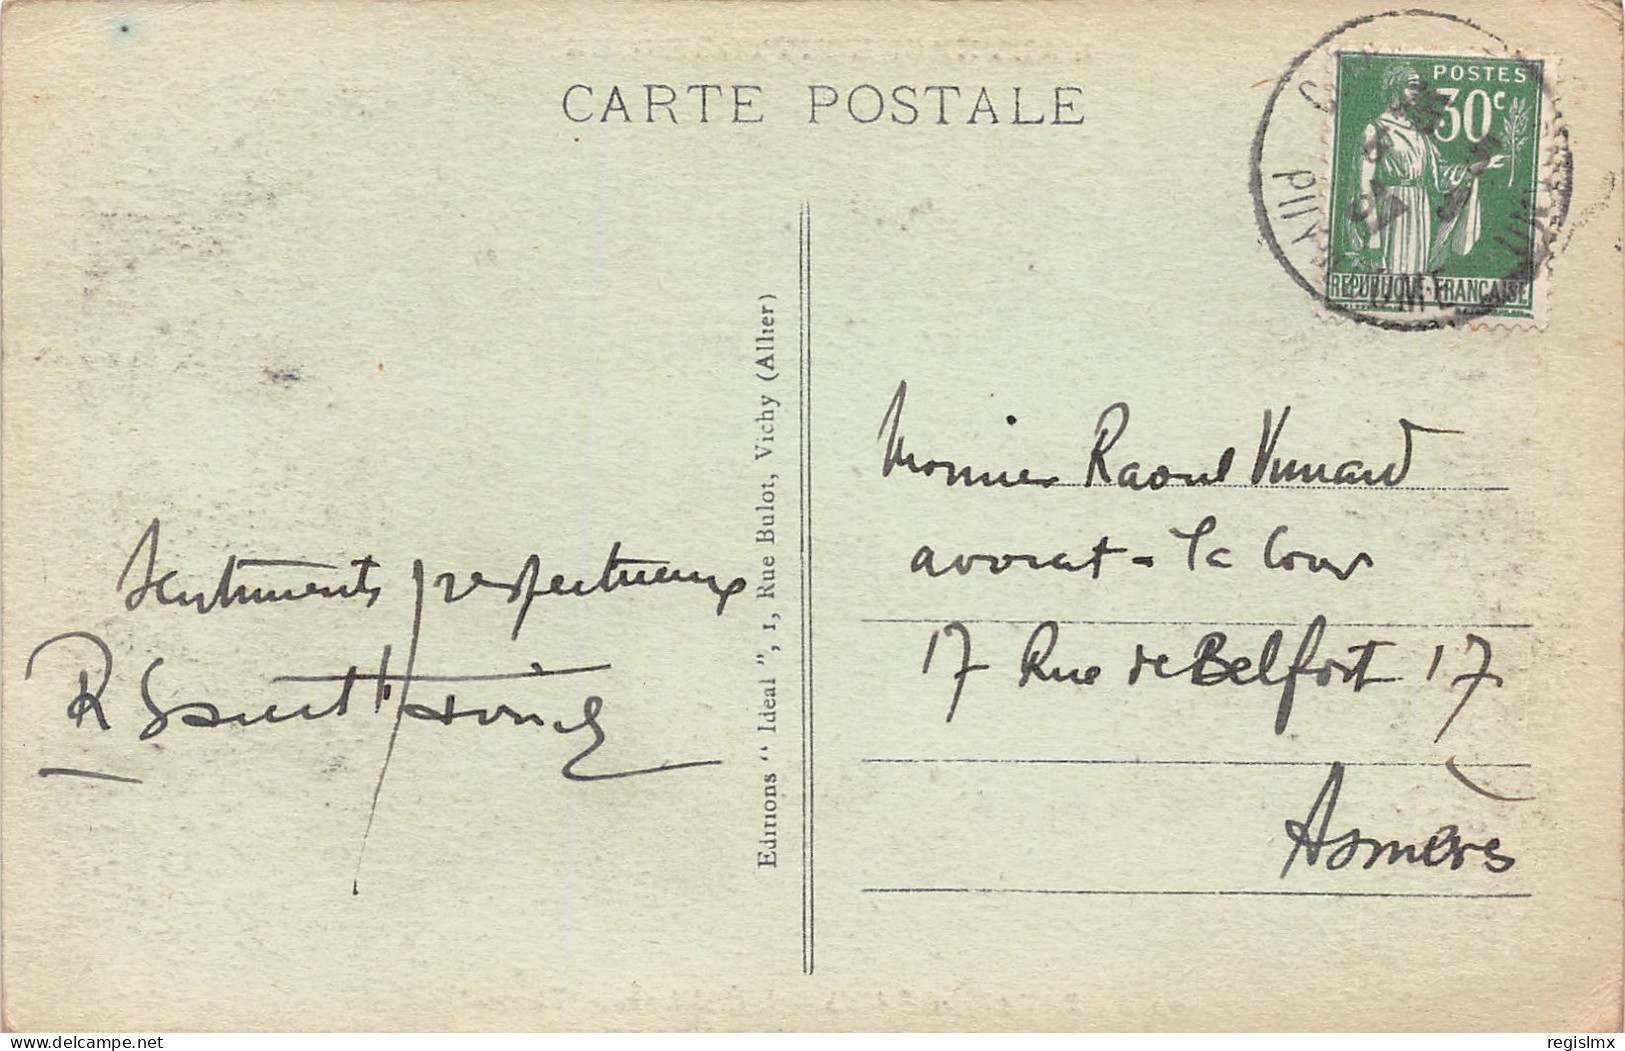 CARTE POSTALE
POSTES
30c
REPUBLIQUE-FRANCAISE
PUY
Sentiments respectueux
R
Editions “Ideal”, 1, Rue Bulot, Vichy (Allier)
Monsieur Raoul
avocat - la Cour
17 Rue de Belfort 17
Asnières
delcampe.net
regislmx